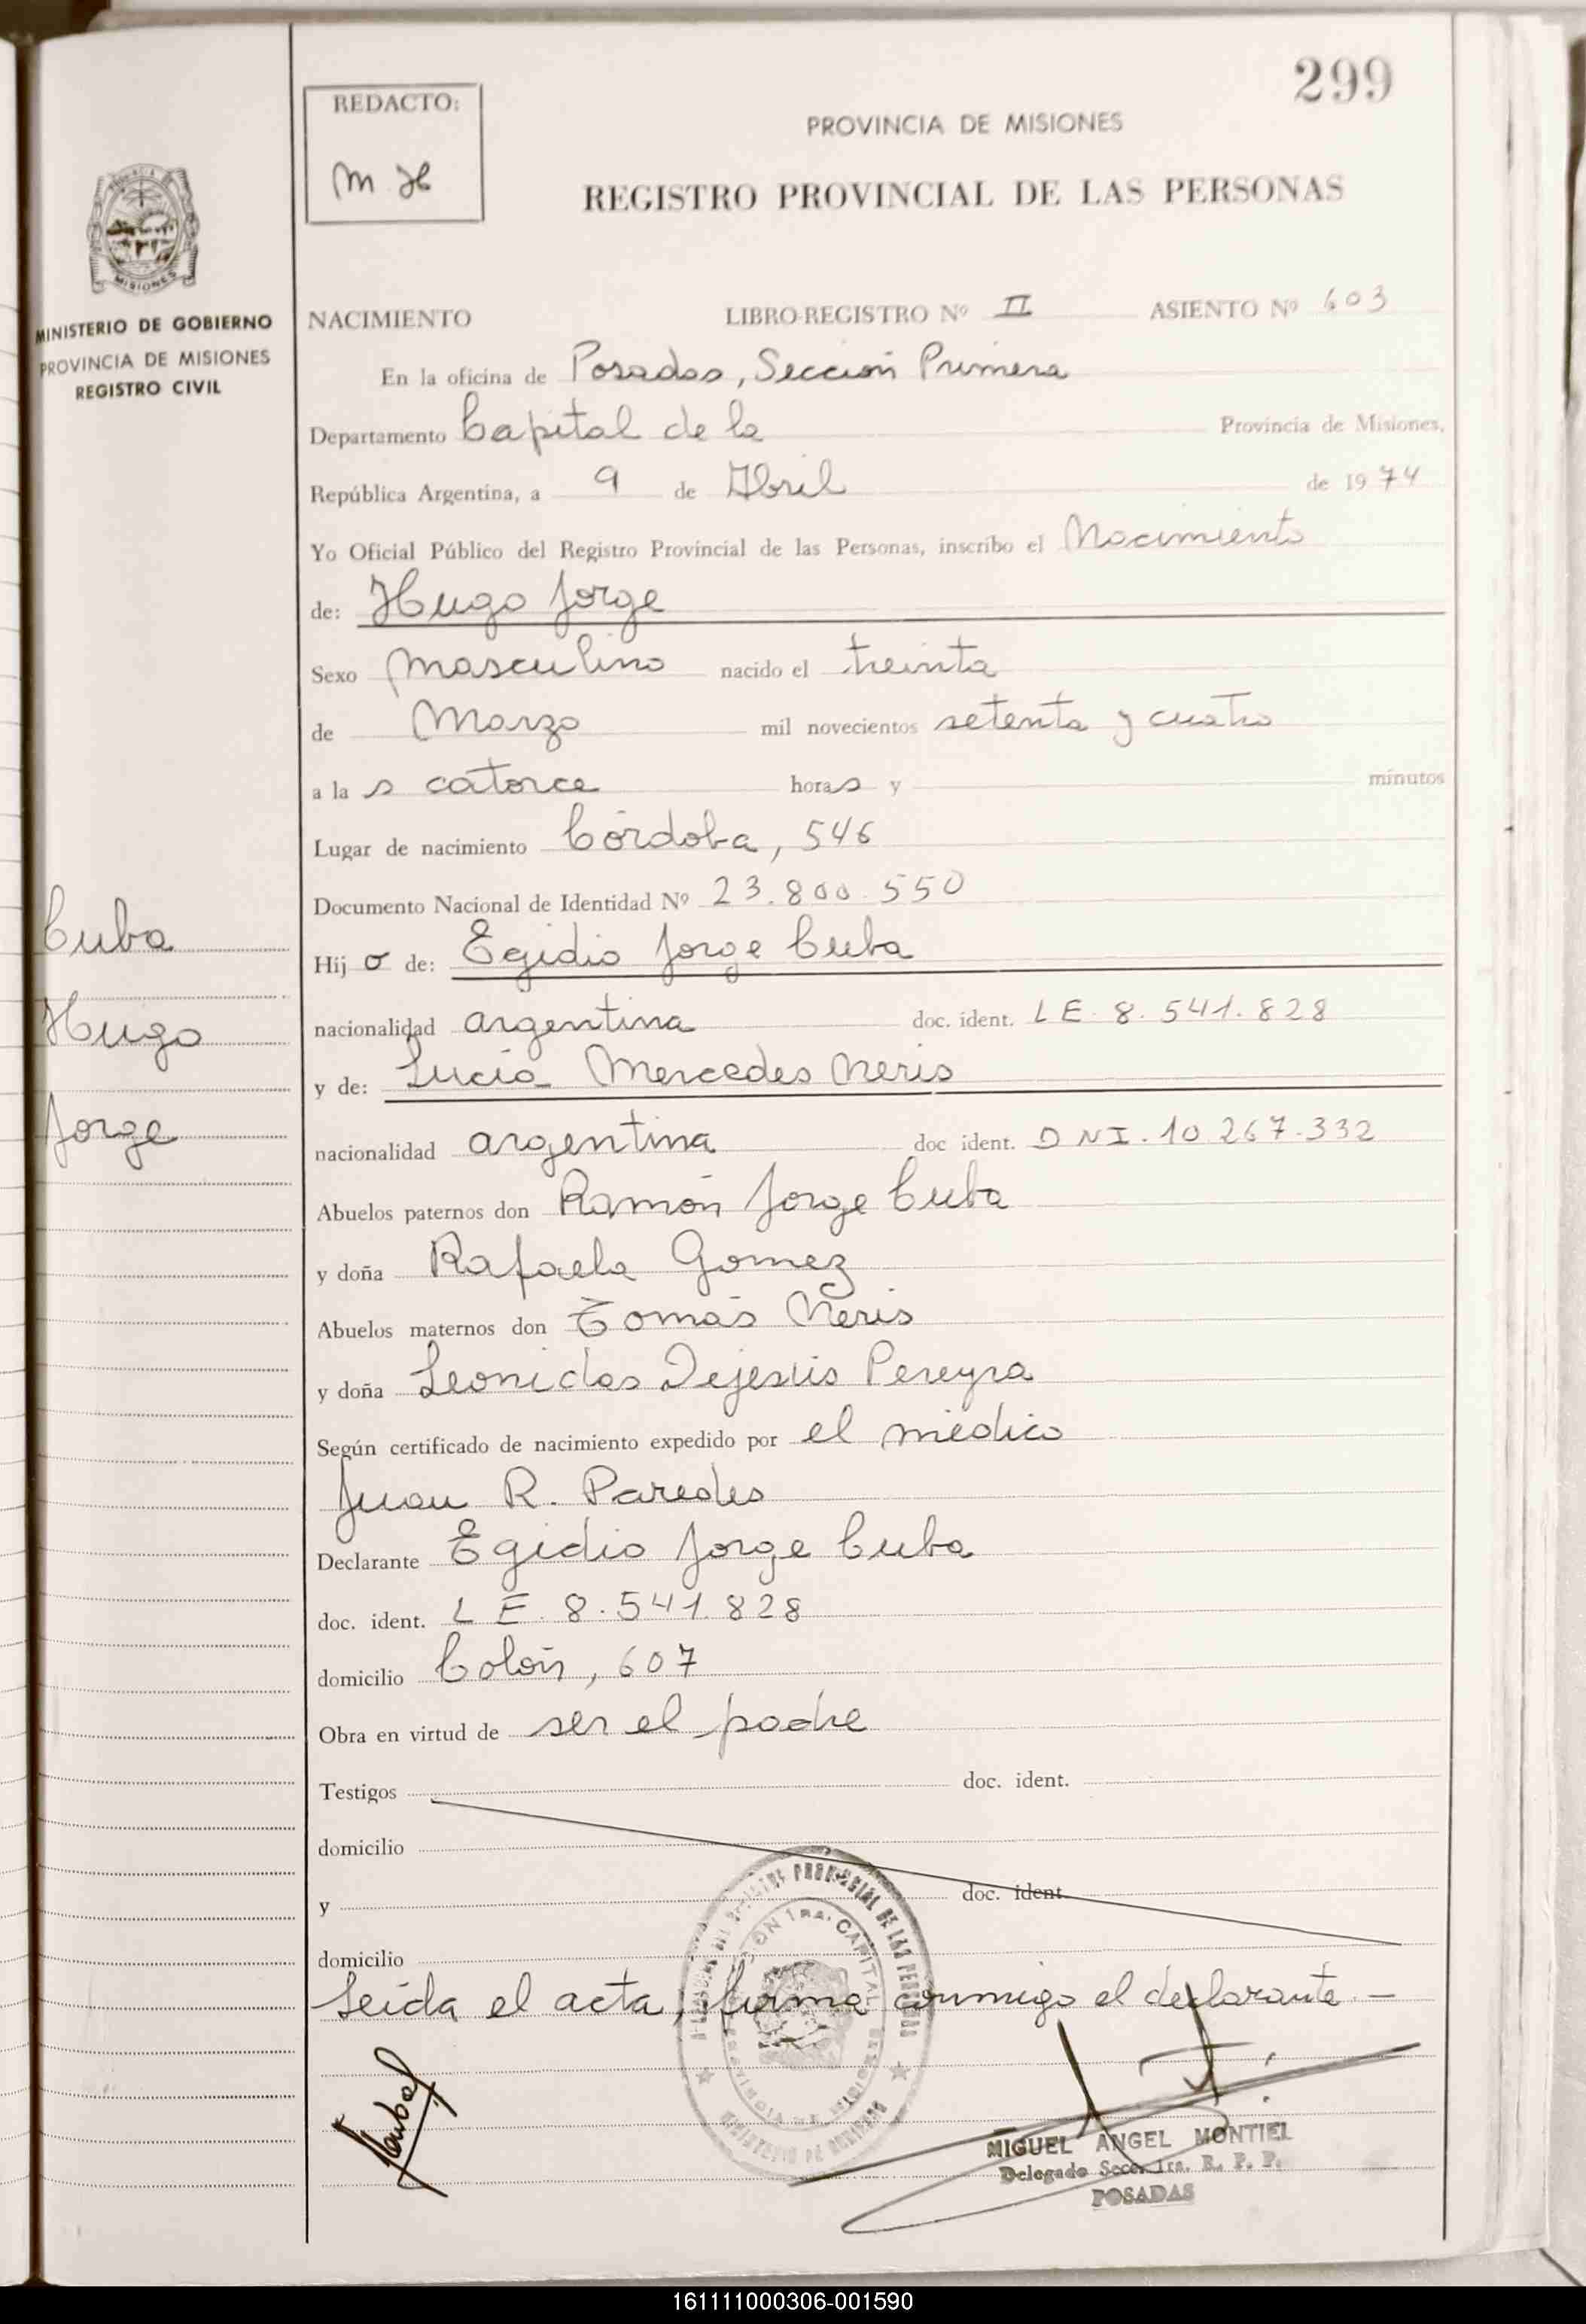 299
REDACTO:
M H
PROVINCIA DE MISIONES
REGISTRO PROVINCIAL DE LAS PERSONAS
MISIONES
MINISTERIO DE GOBIERNO
PROVINCIA DE MISIONES
REGISTRO CIVIL
NACIMIENTO LIBRO-REGISTRO Nº II ASIENTO Nº 603
En la oficina de Posadas, Sección Primera
Departamento Capital de la Provincia de Misiones,
República Argentina, a 9 de Abril de 1974
Yo Oficial Público del Registro Provincial de las Personas, inscribo el Nacimiento
de: Hugo Jorge
Sexo masculino nacido el treinta
de Marzo mil novecientos setenta y cuatro
a las catorce horas y minutos
Lugar de nacimiento Córdoba, 546
Documento Nacional de Identidad Nº 23.800.550
Cuba
Hugo
Jorge
Hijo de: Egidio Jorge Cuba
nacionalidad argentina doc. ident. LE. 8.541.828
y de: Lucía Mercedes Neris
nacionalidad argentina doc ident. DNI. 10 267.332
Abuelos paternos don Ramón Jorge Cuba
y doña Rafaela Gomez
Abuelos maternos don Tomás Neris
y doña Leonidas Dejesús Pereyra
Según certificado de nacimiento expedido por el médico
Juan R. Paredes
Declarante Egidio Jorge Cuba
doc. ident. LE. 8.541.828
domicilio Colón, 607
Obra en virtud de ser el padre
Testigos doc. ident.
domicilio
y doc. ident.
domicilio
Leída el acta, firma conmigo el declarante.-
MIGUEL ANGEL MONTIEL
Delegado Secc. 1ra. R. P. P.
POSADAS
161111000306-001590